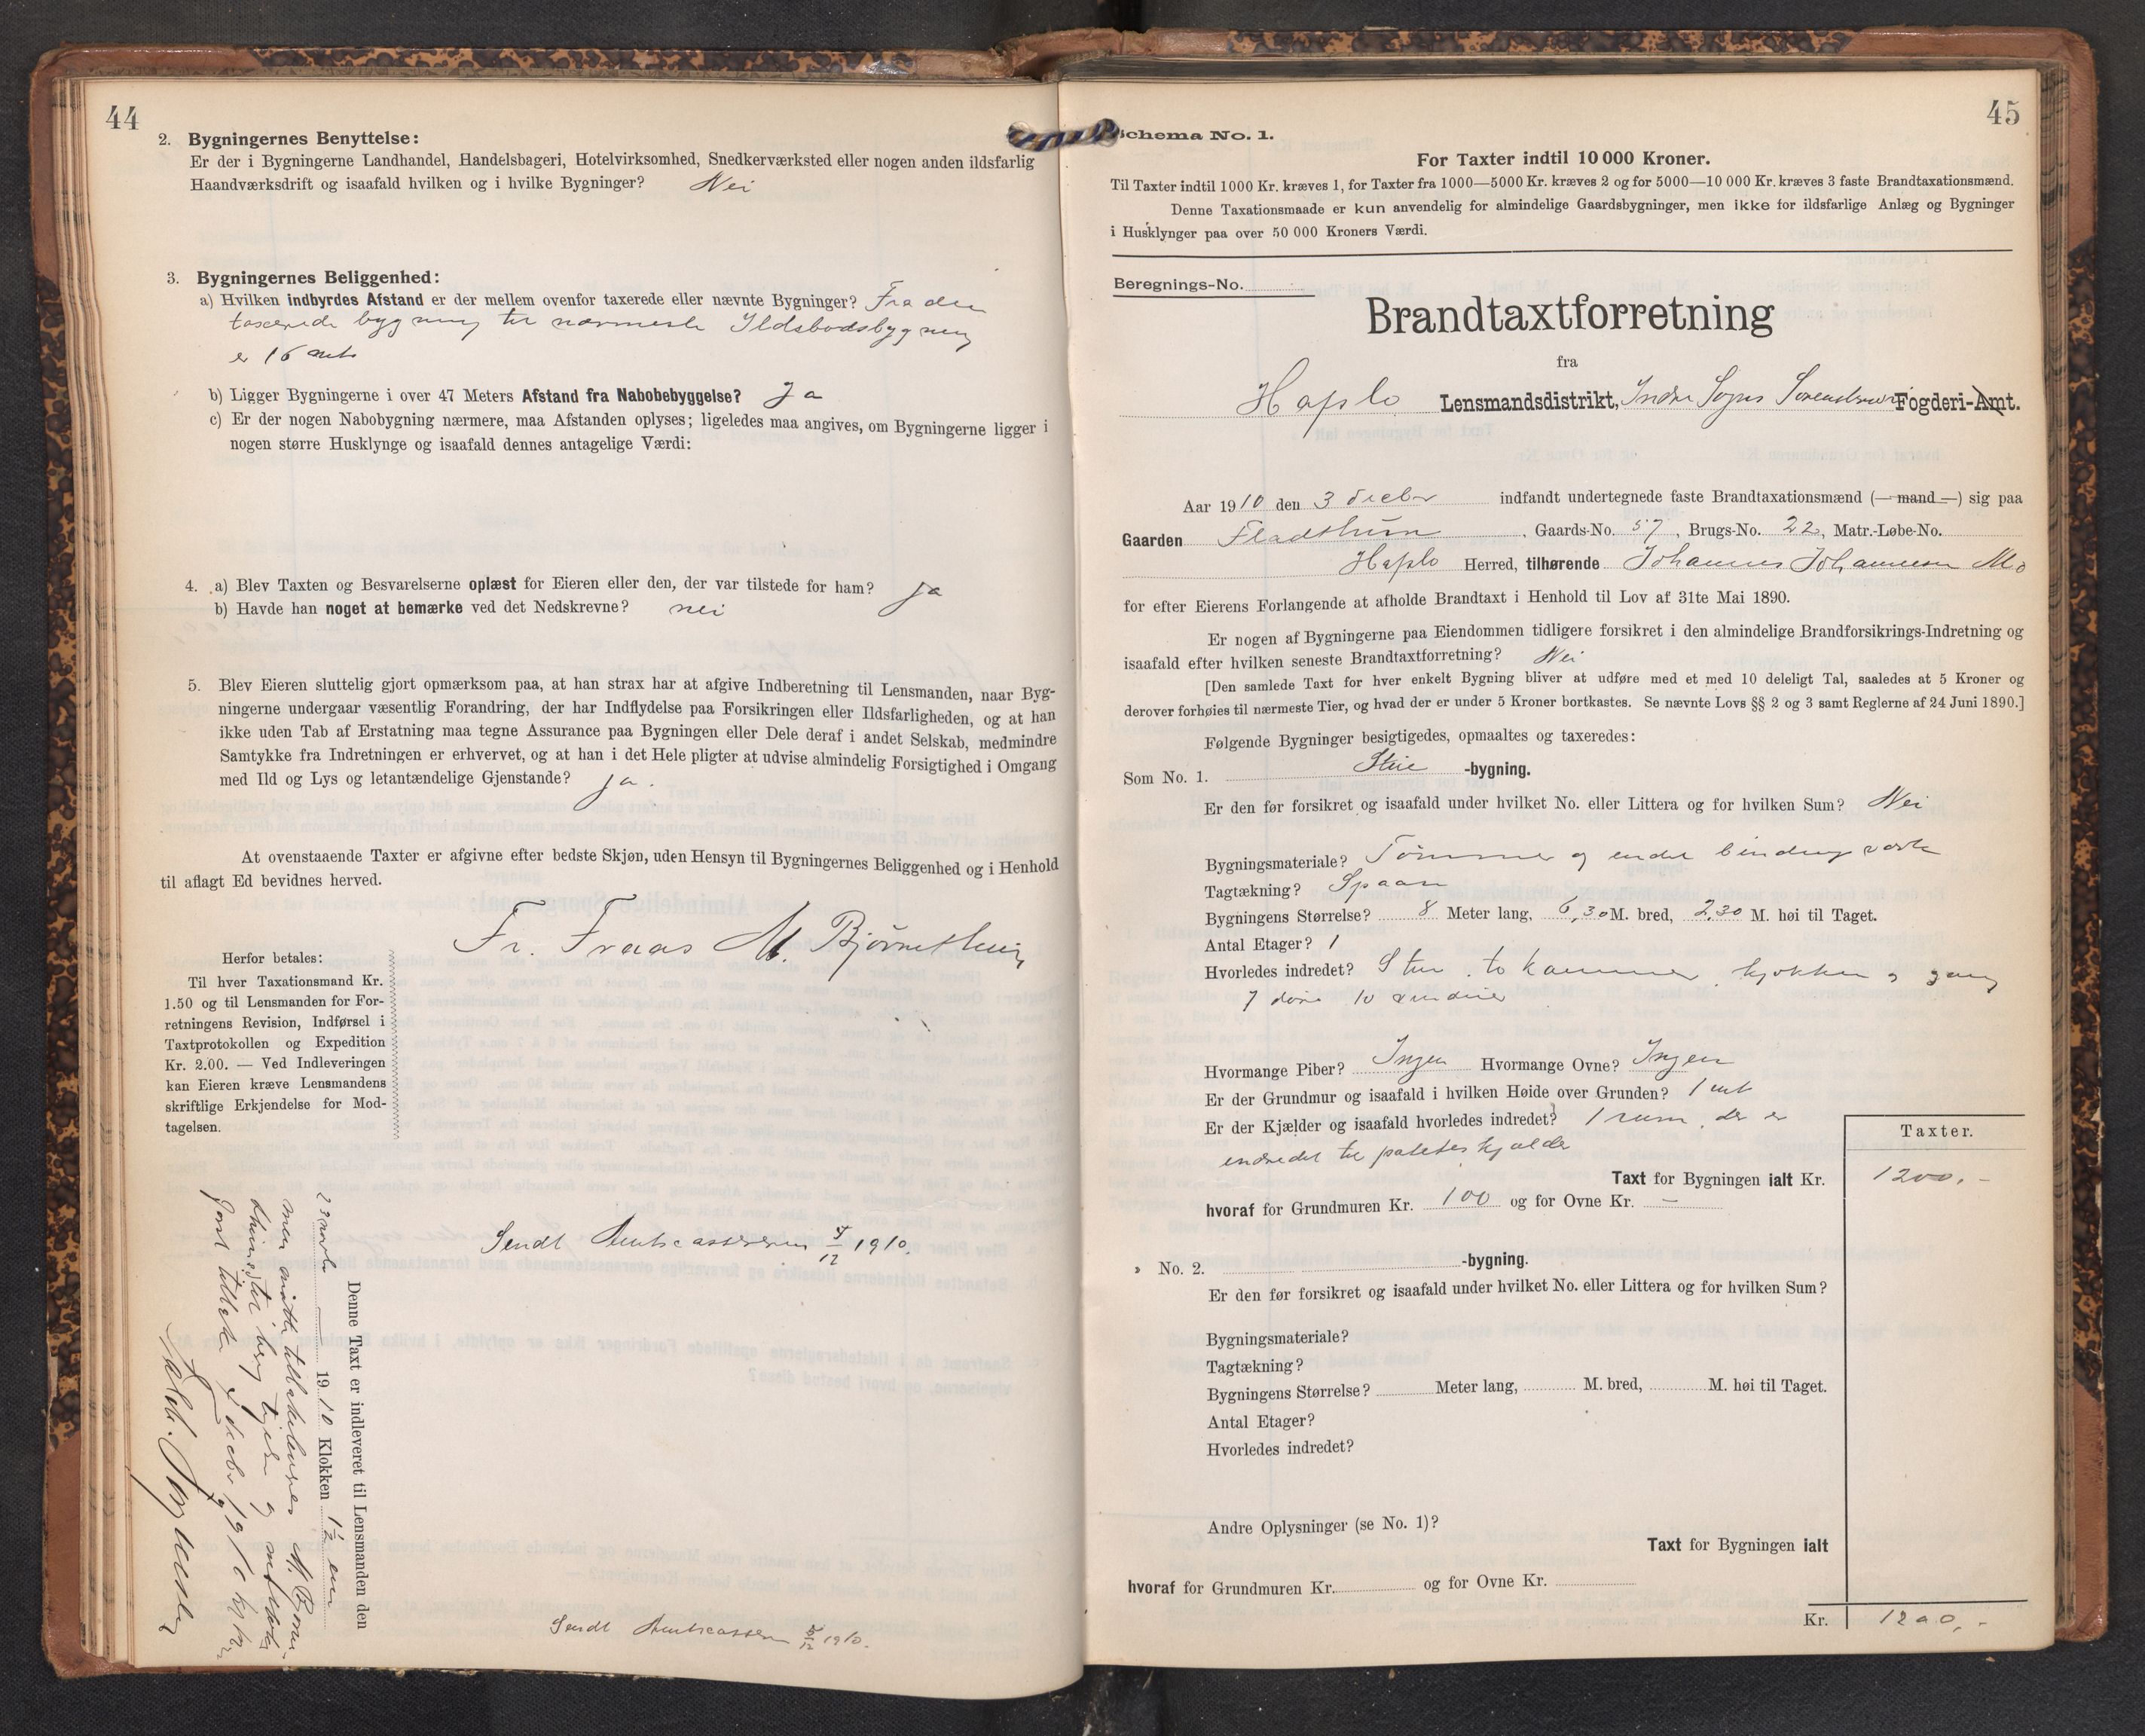 44
2. Bygningernes Benyttelse:
Er der i Bygningerne Landhandel, Handelsbageri, Hotelvirksomhed, Snedkerværksted eller nogen anden ildsfarlig
Haandværksdrift og isaafald hvilken og i hvilke Bygninger? Nei
3. Bygningernes Beliggenhed:
a) Hvilken indbyrdes Afstand er der mellem ovenfor taxerede eller nævnte Bygninger? Fra den
taxerede bygning til nærmeste Ildsbodsbygning
er 16 mtr
b) Ligger Bygningerne i over 47 Meters Afstand fra Nabobebyggelse? Ja
c) Er der nogen Nabobygning nærmere, maa Afstanden oplyses; ligeledes maa angives, om Bygningerne ligger i
nogen større Husklynge og isaafald dennes antagelige Værdi:
4. a) Blev Taxten og Besvarelserne oplæst for Eieren eller den, der var tilstede for ham? Ja
b) Havde han noget at bemærke ved det Nedskrevne? nei
5. Blev Eieren sluttelig gjort opmærksom paa, at han strax har at afgive Indberetning til Lensmanden, naar Byg-
ningerne undergaar væsentlig Forandring, der har Indflydelse paa Forsikringen eller Ildsfarligheden, og at han
ikke uden Tab af Erstatning maa tegne Assurance paa Bygningen eller Dele deraf i andet Selskab, medmindre
Samtykke fra Indretningen er erhvervet, og at han i det Hele pligter at udvise almindelig Forsigtighed i Omgang
med Ild og Lys og letantændelige Gjenstande? ja.
At ovenstaaende Taxter er afgivne efter bedste Skjøn, uden Hensyn til Bygningernes Beliggenhed og i Henhold
til aflagt Ed bevidnes herved.
Fr. Fraas M. Bjørnethun
Herfor betales:
Til hver Taxationsmand Kr.
1.50 og til Lensmanden for For-
retningens Revision, Indførsel i
Taxtprotokollen og Expedition
Kr. 2.00. — Ved Indleveringen
kan Eieren kræve Lensmandens
skriftlige Erkjendelse for Mod-
tagelsen.
Sendt Amtscassereren 5/12 1910.
Denne Taxt er indleveret til Lensmanden den
1910 Klokken 1½ em
men
M. Bjørne-
thun
1910
Sendt Amtscasseren 5/12 1910.
45
Schema No. 1.
For Taxter indtil 10 000 Kroner.
Til Taxter indtil 1000 Kr. kræves 1, for Taxter fra 1000—5000 Kr. kræves 2 og for 5000—10 000 Kr. kræves 3 faste Brandtaxationsmænd.
Denne Taxationsmaade er kun anvendelig for almindelige Gaardsbygninger, men ikke for ildsfarlige Anlæg og Bygninger
i Husklynger paa over 50 000 Kroners Værdi.
Beregnings-No.
Brandtaxtforretning
fra
Hafslo Lensmandsdistrikt, Indre Sogns Sorenskriveri Fogderi-Amt.
Aar 1910 den 3 decbr indfandt undertegnede faste Brandtaxationsmænd (— mand —) sig paa
Gaarden Fladthun, Gaards-No. 57, Brugs-No. 22, Matr.-Løbe-No.
Hafslo Herred, tilhørende Johannes Johannesen Mo
for efter Eierens Forlangende at afholde Brandtaxt i Henhold til Lov af 31te Mai 1890.
Er nogen af Bygningerne paa Eiendommen tidligere forsikret i den almindelige Brandforsikrings-Indretning og
isaafald efter hvilken seneste Brandtaxtforretning? Nei
[Den samlede Taxt for hver enkelt Bygning bliver at udføre med et med 10 deleligt Tal, saaledes at 5 Kroner og
derover forhøies til nærmeste Tier, og hvad der er under 5 Kroner bortkastes. Se nævnte Lovs §§ 2 og 3 samt Reglerne af 24 Juni 1890.]
Følgende Bygninger besigtigedes, opmaaltes og taxeredes:
Som No. 1. Stue -bygning.
Er den før forsikret og isaafald under hvilket No. eller Littera og for hvilken Sum? Nei
Bygningsmateriale? Tømmer og endel bindingsverk
Tagtækning? Spaan
Bygningens Størrelse? 8 Meter lang, 6,30 M. bred, 2,30 M. høi til Taget.
Antal Etager? 1
Hvorledes indredet? Stue, to kammer, kjøkken og gang
7 døre 10 vinduer
Hvormange Piber? Ingen Hvormange Ovne? Ingen
Er der Grundmur og isaafald i hvilken Høide over Grunden? 1 mt
Er der Kjælder og isaafald hvorledes indredet? 1 rum, der er
indredet til potetes kjælder
Taxter.
Taxt for Bygningen ialt Kr. 1200,-
hvoraf for Grundmuren Kr. 100 og for Ovne Kr. —
" No. 2. -bygning.
Er den før forsikret og isaafald under hvilket No. eller Littera og for hvilken Sum?
Bygningsmateriale?
Tagtækning?
Bygningens Størrelse? Meter lang, M. bred, M. høi til Taget.
Antal Etager?
Hvorledes indredet?
Andre Oplysninger (se No. 1)?
Taxt for Bygningen ialt
hvoraf for Grundmuren Kr. og for Ovne Kr.
Kr. 1200,-